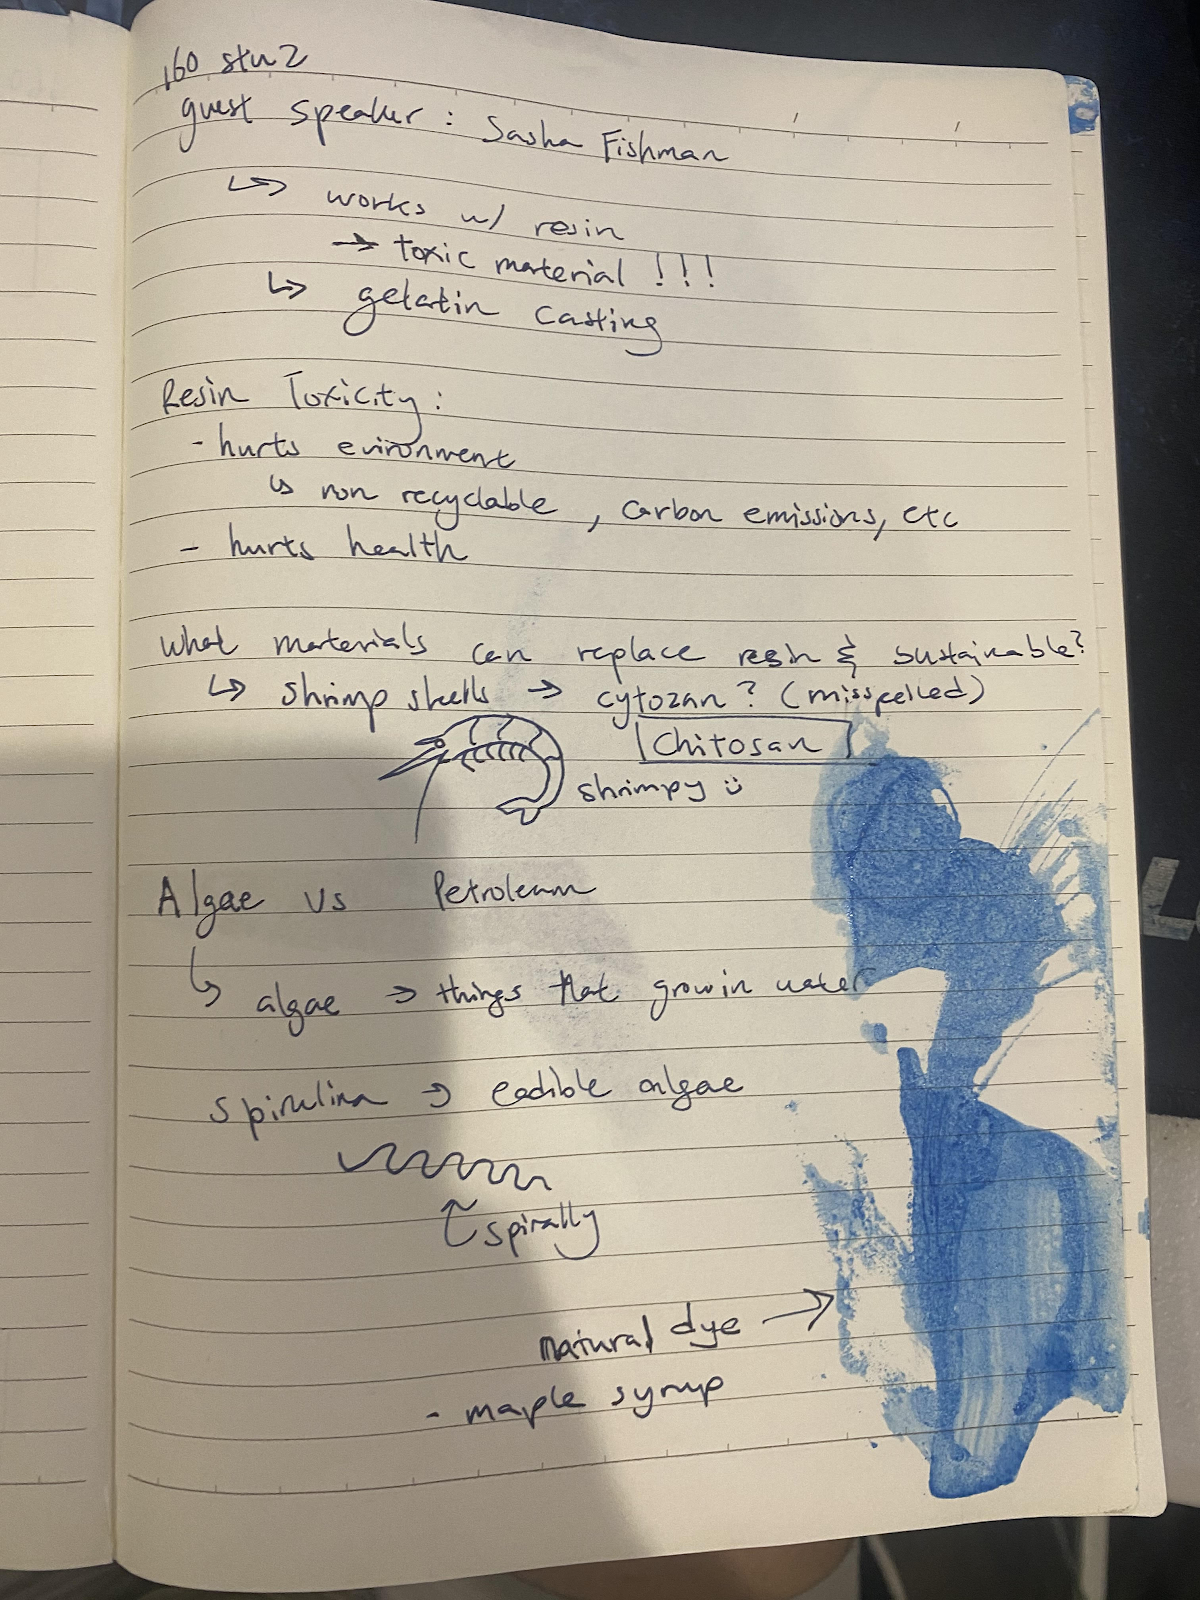 160 stu2
guest speaker : Sasha Fishman
↳ works w/ resin
→ toxic material !!!
↳ gelatin casting
Resin Toxicity:
- hurts evironment
↳ non recyclable , carbon emissions, etc
- hurts health
What materials can replace resin & sustainable?
↳ shrimp shells → cytozan? (misspelled)
Chitosan
shrimpy :)
Algae vs Petroleum
↳ algae → things that grow in water
spirulina → eadible algae
spirally
natural dye →
- maple syrup